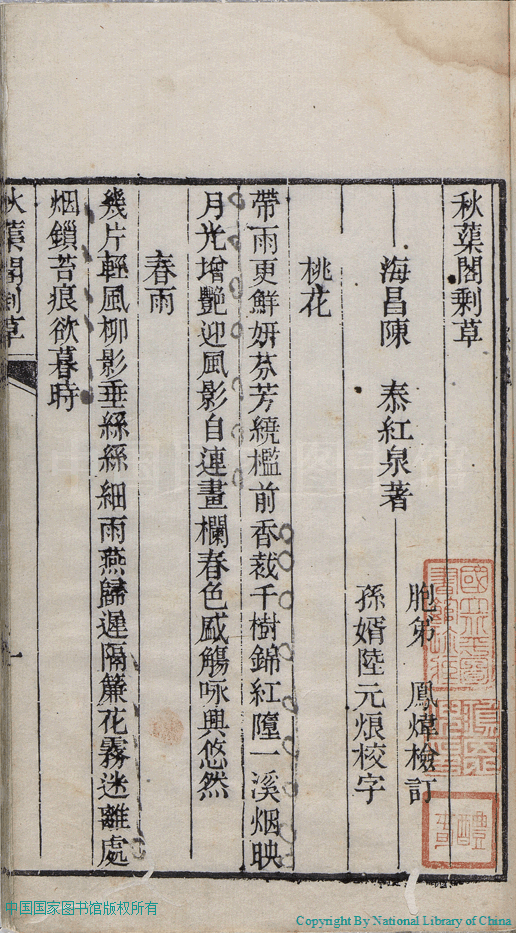 秋蕖閣剩草
胞弟 鳳煒檢訂
海昌陳 泰紅泉著
孫婿陸元煨校字
桃花
帶雨更鮮妍芬芳繞檻前香裁千樹錦紅墮一溪烟映
月光增艷迎風影自連畫欄春色盛觴咏興悠然
春雨
幾片輕風柳影垂絲絲細雨燕歸遲隔簾花霧迷離處
烟鎖苔痕欲暮時
秋蕖閣剩草
一
中国国家图书馆版权所有
Copyright By National Library of China